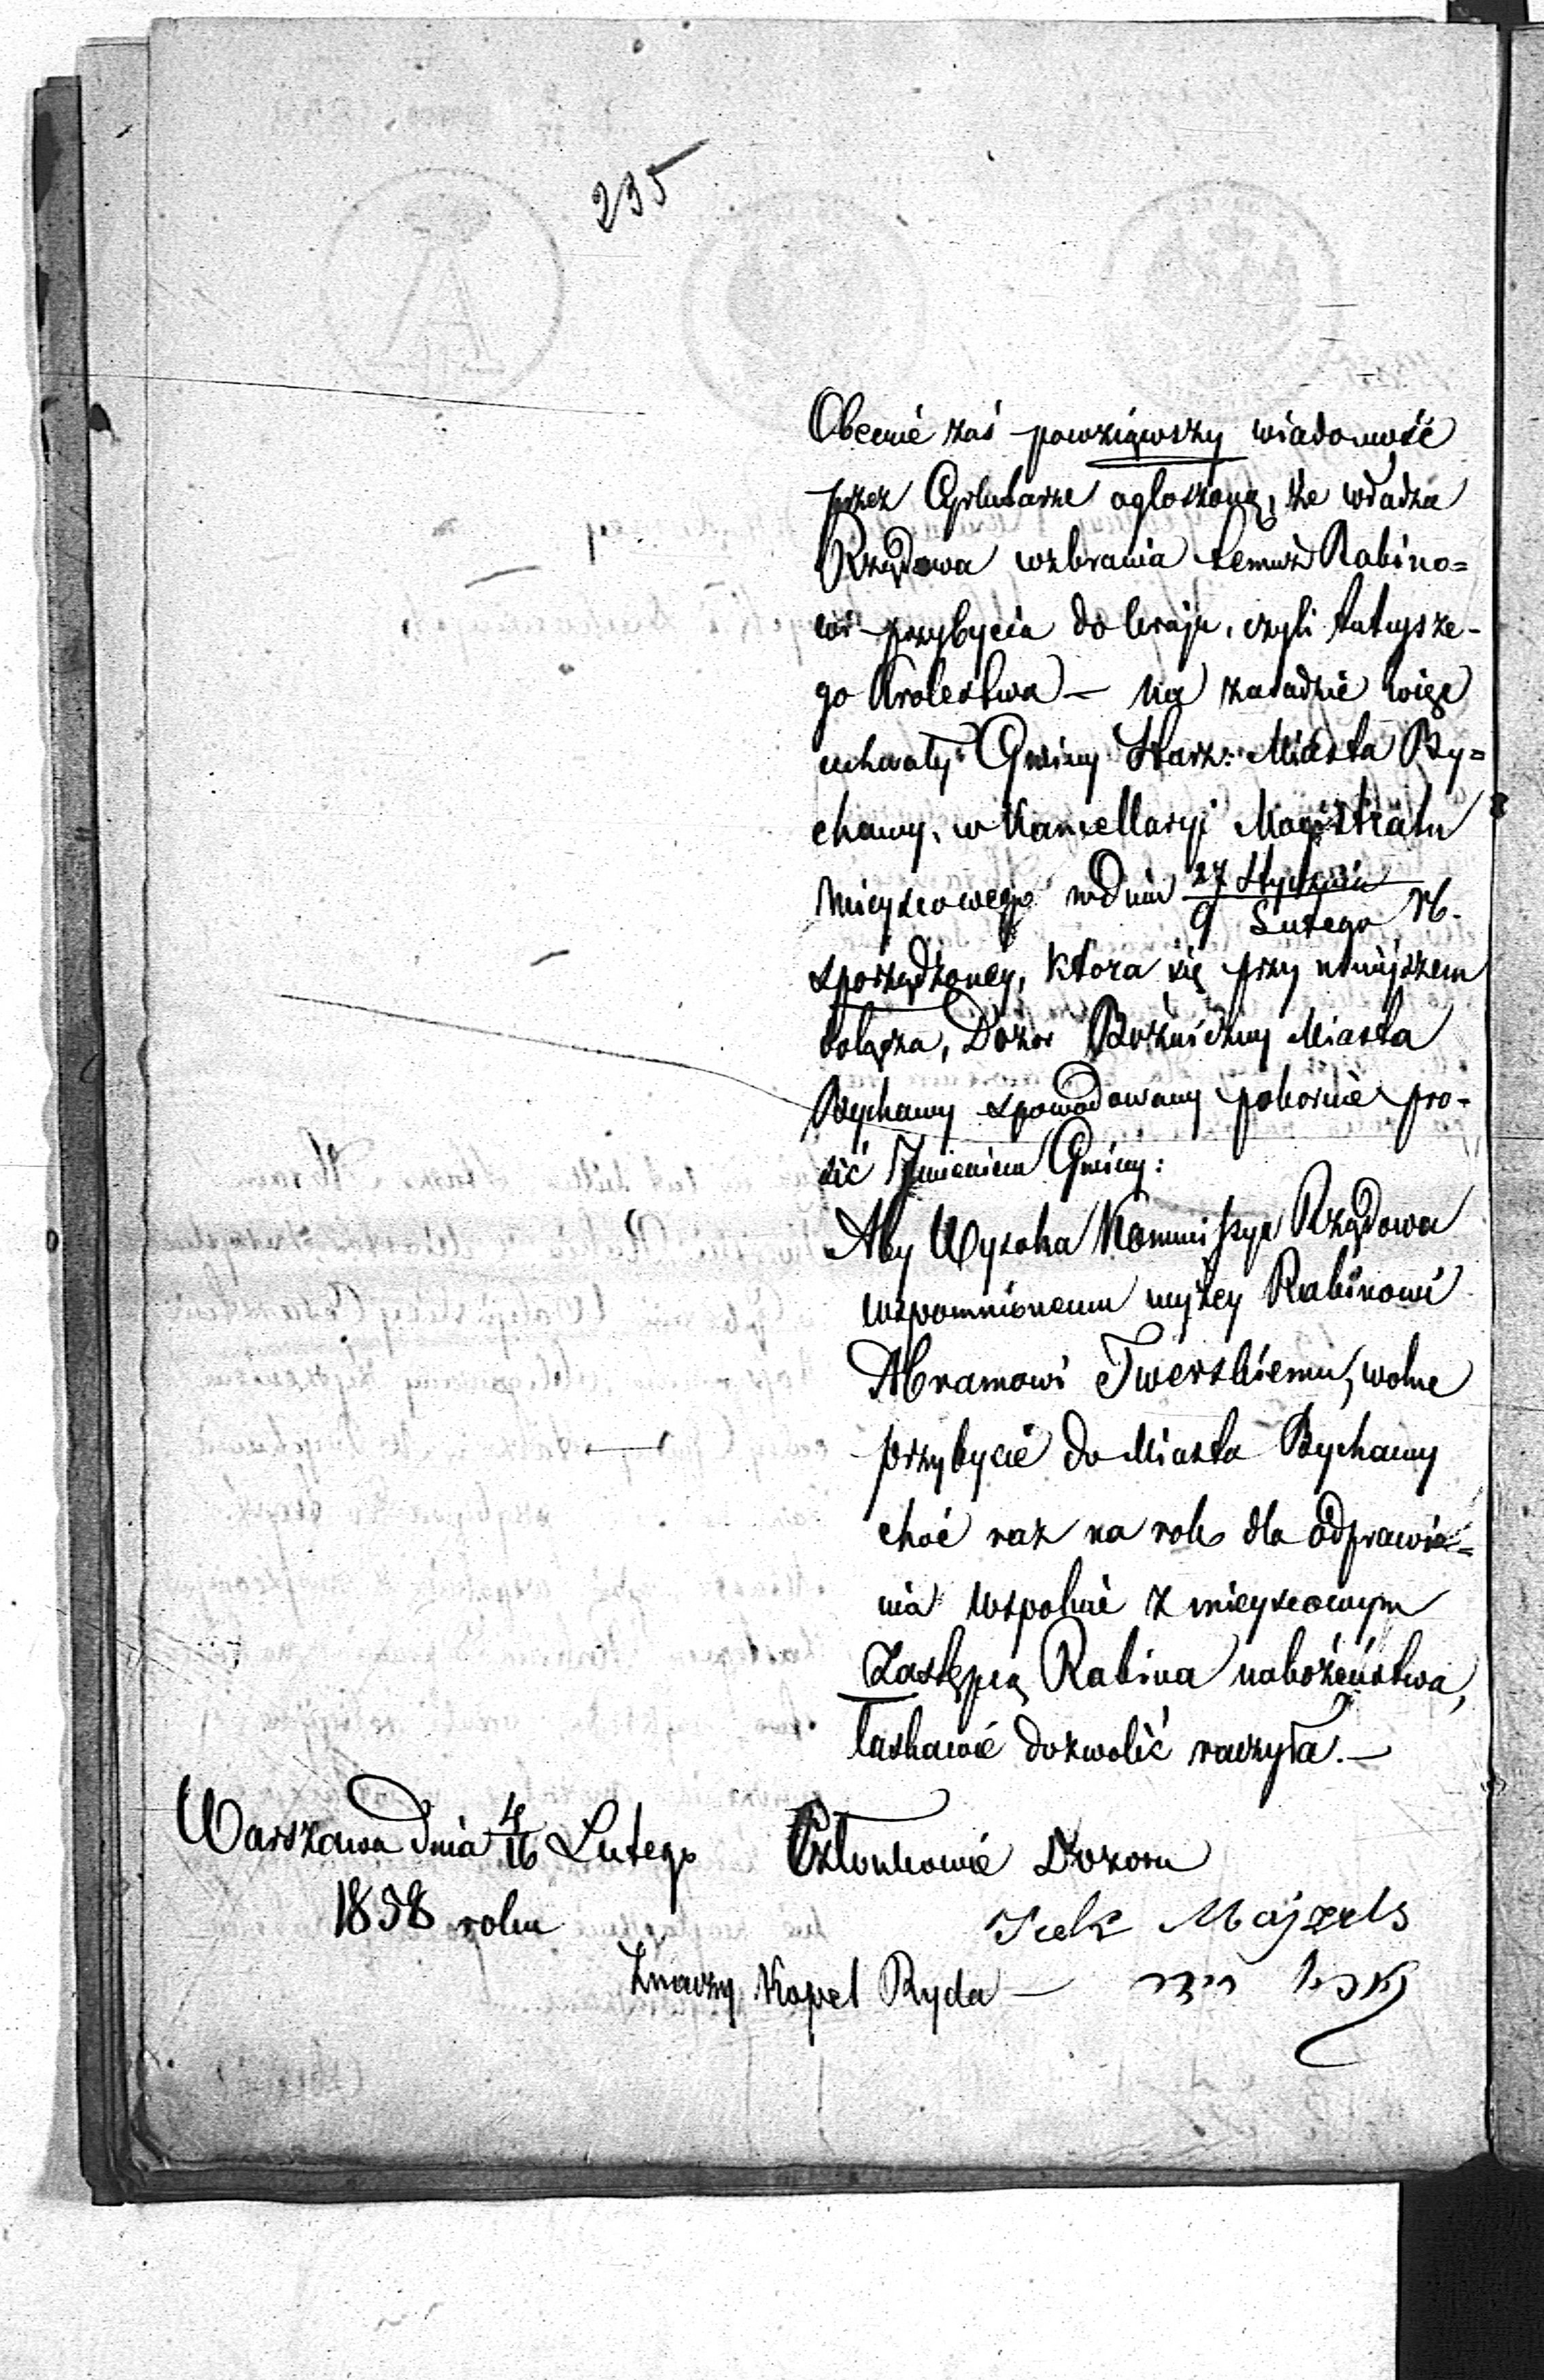 235
Obecnie zaś powziąwszy wiadomość
przez Cyrkularze ogłoszoną, że władza
Rządowa wzbrania temuż Rabino=
wi przybycia do kraju, czyli tutejsze-
go Krolestwa — na zasadzie więc
uchwały Gminy Starz: Miasta By=
chawy, w Kancellaryi Magistratu
Mieyscowego w dniu 27 Stycznia / 9 Lutego rb.
sporządzoney, ktora się przy niniejszem
dołącza, Dozor Bożniczny Miasta
Bychawy spowodowany pokornie pro-
sić Imieniem Gminy:
Aby Wysoka Kommissya Rządowa
wspomnionemu wyżey Rabinowi
Abramowi Twerskiemu, wolne
przybycie do Miasta Bychawy
choć raz na rok dla odprawie=
nia wspolnie z mieyscowym
Zastępcą Rabina nabożeństwa,
łaskawie dozwolić raczyła. —
Warszawa dnia 4/16 Lutego
1838 roku
Członkowie Dozoru
Icek Majzels
Znaczy Kopel Ryda —